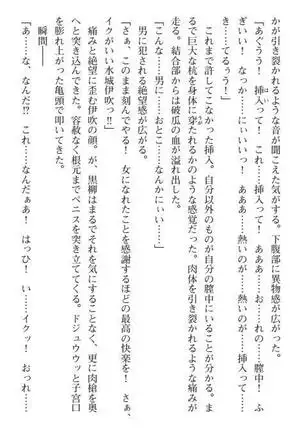 かが引き裂かれるような音が聞こえた気がする。下腹部に異物感が広がった。
「あぐうう! 挿入って! これ……挿入って! あああ……お……れの…膣中! ふ
ぎいい! なっ……なに……にぃいいっ! あああ……熱いのが……熱いのが……挿入って
き……てるぅう!」
これまで許してこなかった挿入。自分以外のものが自分の膣中にいることが分かる。ま
るで巨大な杭を身体に穿たれるかのような感覚だった。肉体を引き裂かれるような痛みが
走る。結合部からは破瓜の血が溢れ出した。
「こんな……男に……おとこ……なんかにぃい……」
男に犯される絶望感が広がる。
「さぁ、このまま刻んでやる! 女になれたことを感謝するほどの最高の快楽を! さぁ、
イクがいい水城伊吹っ!」
痛みと絶望に歪む伊吹の顔。が、黒柳はまるでそれを気にすることなく、更に肉槍を奥
へと突き込んでくる。容赦なく根元までペニスを突き立ててくる。ドジュウウッと子宮口
を膨れ上がった亀頭で叩いてきた。
瞬間――
「あ……な、なんだ!? これ……なんだぁあ! はっひ! い……イクッ! おっれ……